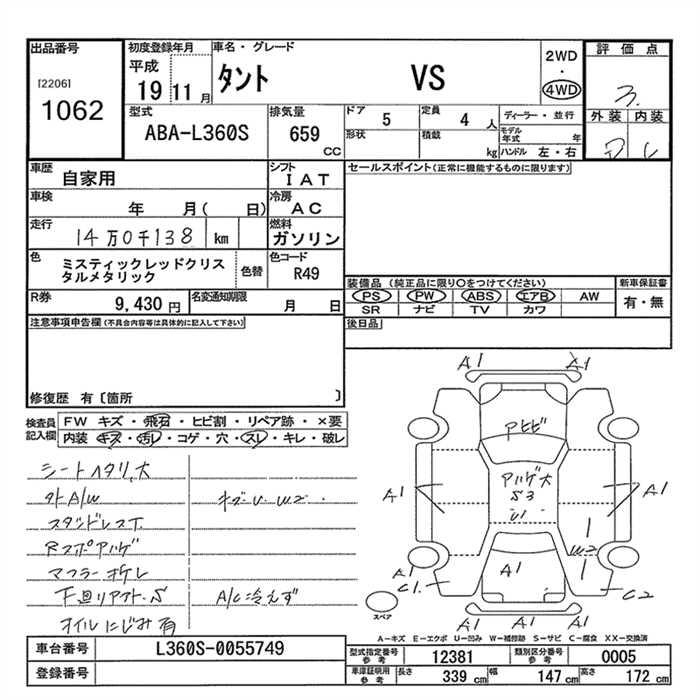 出品番号
[2206]
1062
初度登録年月
平成
19 11 月
車名・グレード
タント VS
2WD
・
4WD
評価点
3.
外装 内装
型式
ABA-L360S
排気量
659
CC
ドア
5
定員
4 人
形状
積載
kg
ディーラー・並行
モデル
年式 年
ハンドル 左・右
車歴
自家用
シフト
IAT
車検
年 月( 日)
冷房
AC
走行
14万0千138 km
燃料
ガソリン
色
ミスティックレッドクリス
タルメタリック
色替
色コード
R49
R券
9,430 円
名変通知期限
月 日
セールスポイント(正常に機能するものに限ります)
装備品(純正品に限り○をつけてください)
PS PW ABS エアB AW
SR ナビ TV カワ
新車保証書
有・無
後日品
注意事項申告欄(不具合内容等は具体的に記入して下さい)
修復歴 有〔箇所 〕
検査員
記入欄
FW キズ・飛石・ヒビ割・リペア跡・×要
内装・キズ・汚レ・コゲ・穴・スレ・キレ・破レ
シートヘタリ、大
外A/W キズU W2
スタッドレスT.
Rスポアハゲ
マフラーオケレ
下廻リアオト.S A/C冷えず
オイルにじみ有
A1 A1
アヒビ
アハゲ大
S3
A1 A1
W2
A1
A1
A1
C1.
C2
A1 A1 A1
スペア
A-キズ E-エクボ U-凹み W-補修跡 S-サビ C-腐食 XX-交換済
車台番号
L360S-0055749
登録番号
型式指定番号
参考
12381
類別区分番号
参考
0005
車庫証明用
参考
長さ
339 cm
幅
147 cm
高さ
172 cm